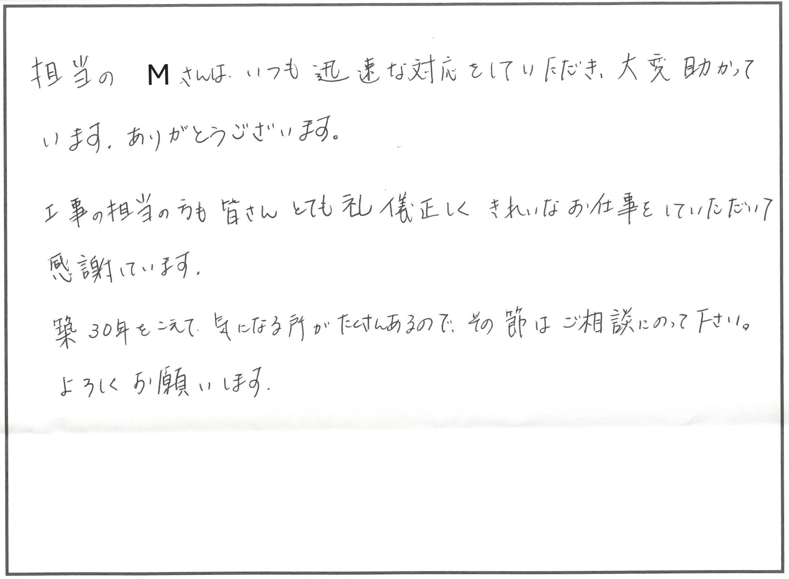 担当の Mさんは、いつも迅速な対応をしていただき、大変助かって
います。ありがとうございます。
工事の担当の方も皆さんとても礼儀正しくきれいなお仕事をしていただいて
感謝しています。
築30年をこえて、気になる所がたくさんあるので、その節はご相談にのって下さい。
よろしくお願いします。